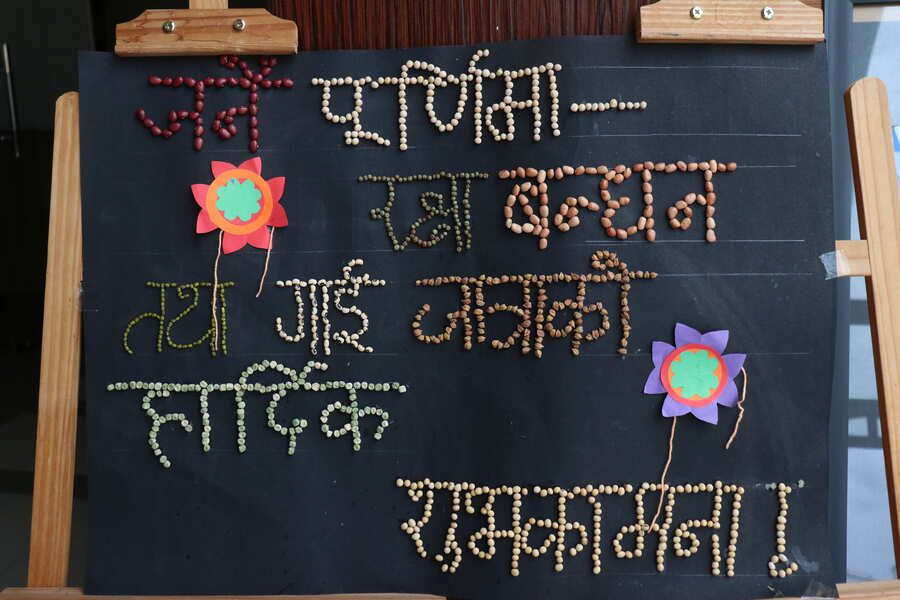 जनै पूर्णिमा–
रक्षा बन्धन
तथा गाई जात्राको
हार्दिक
शुभकामना !